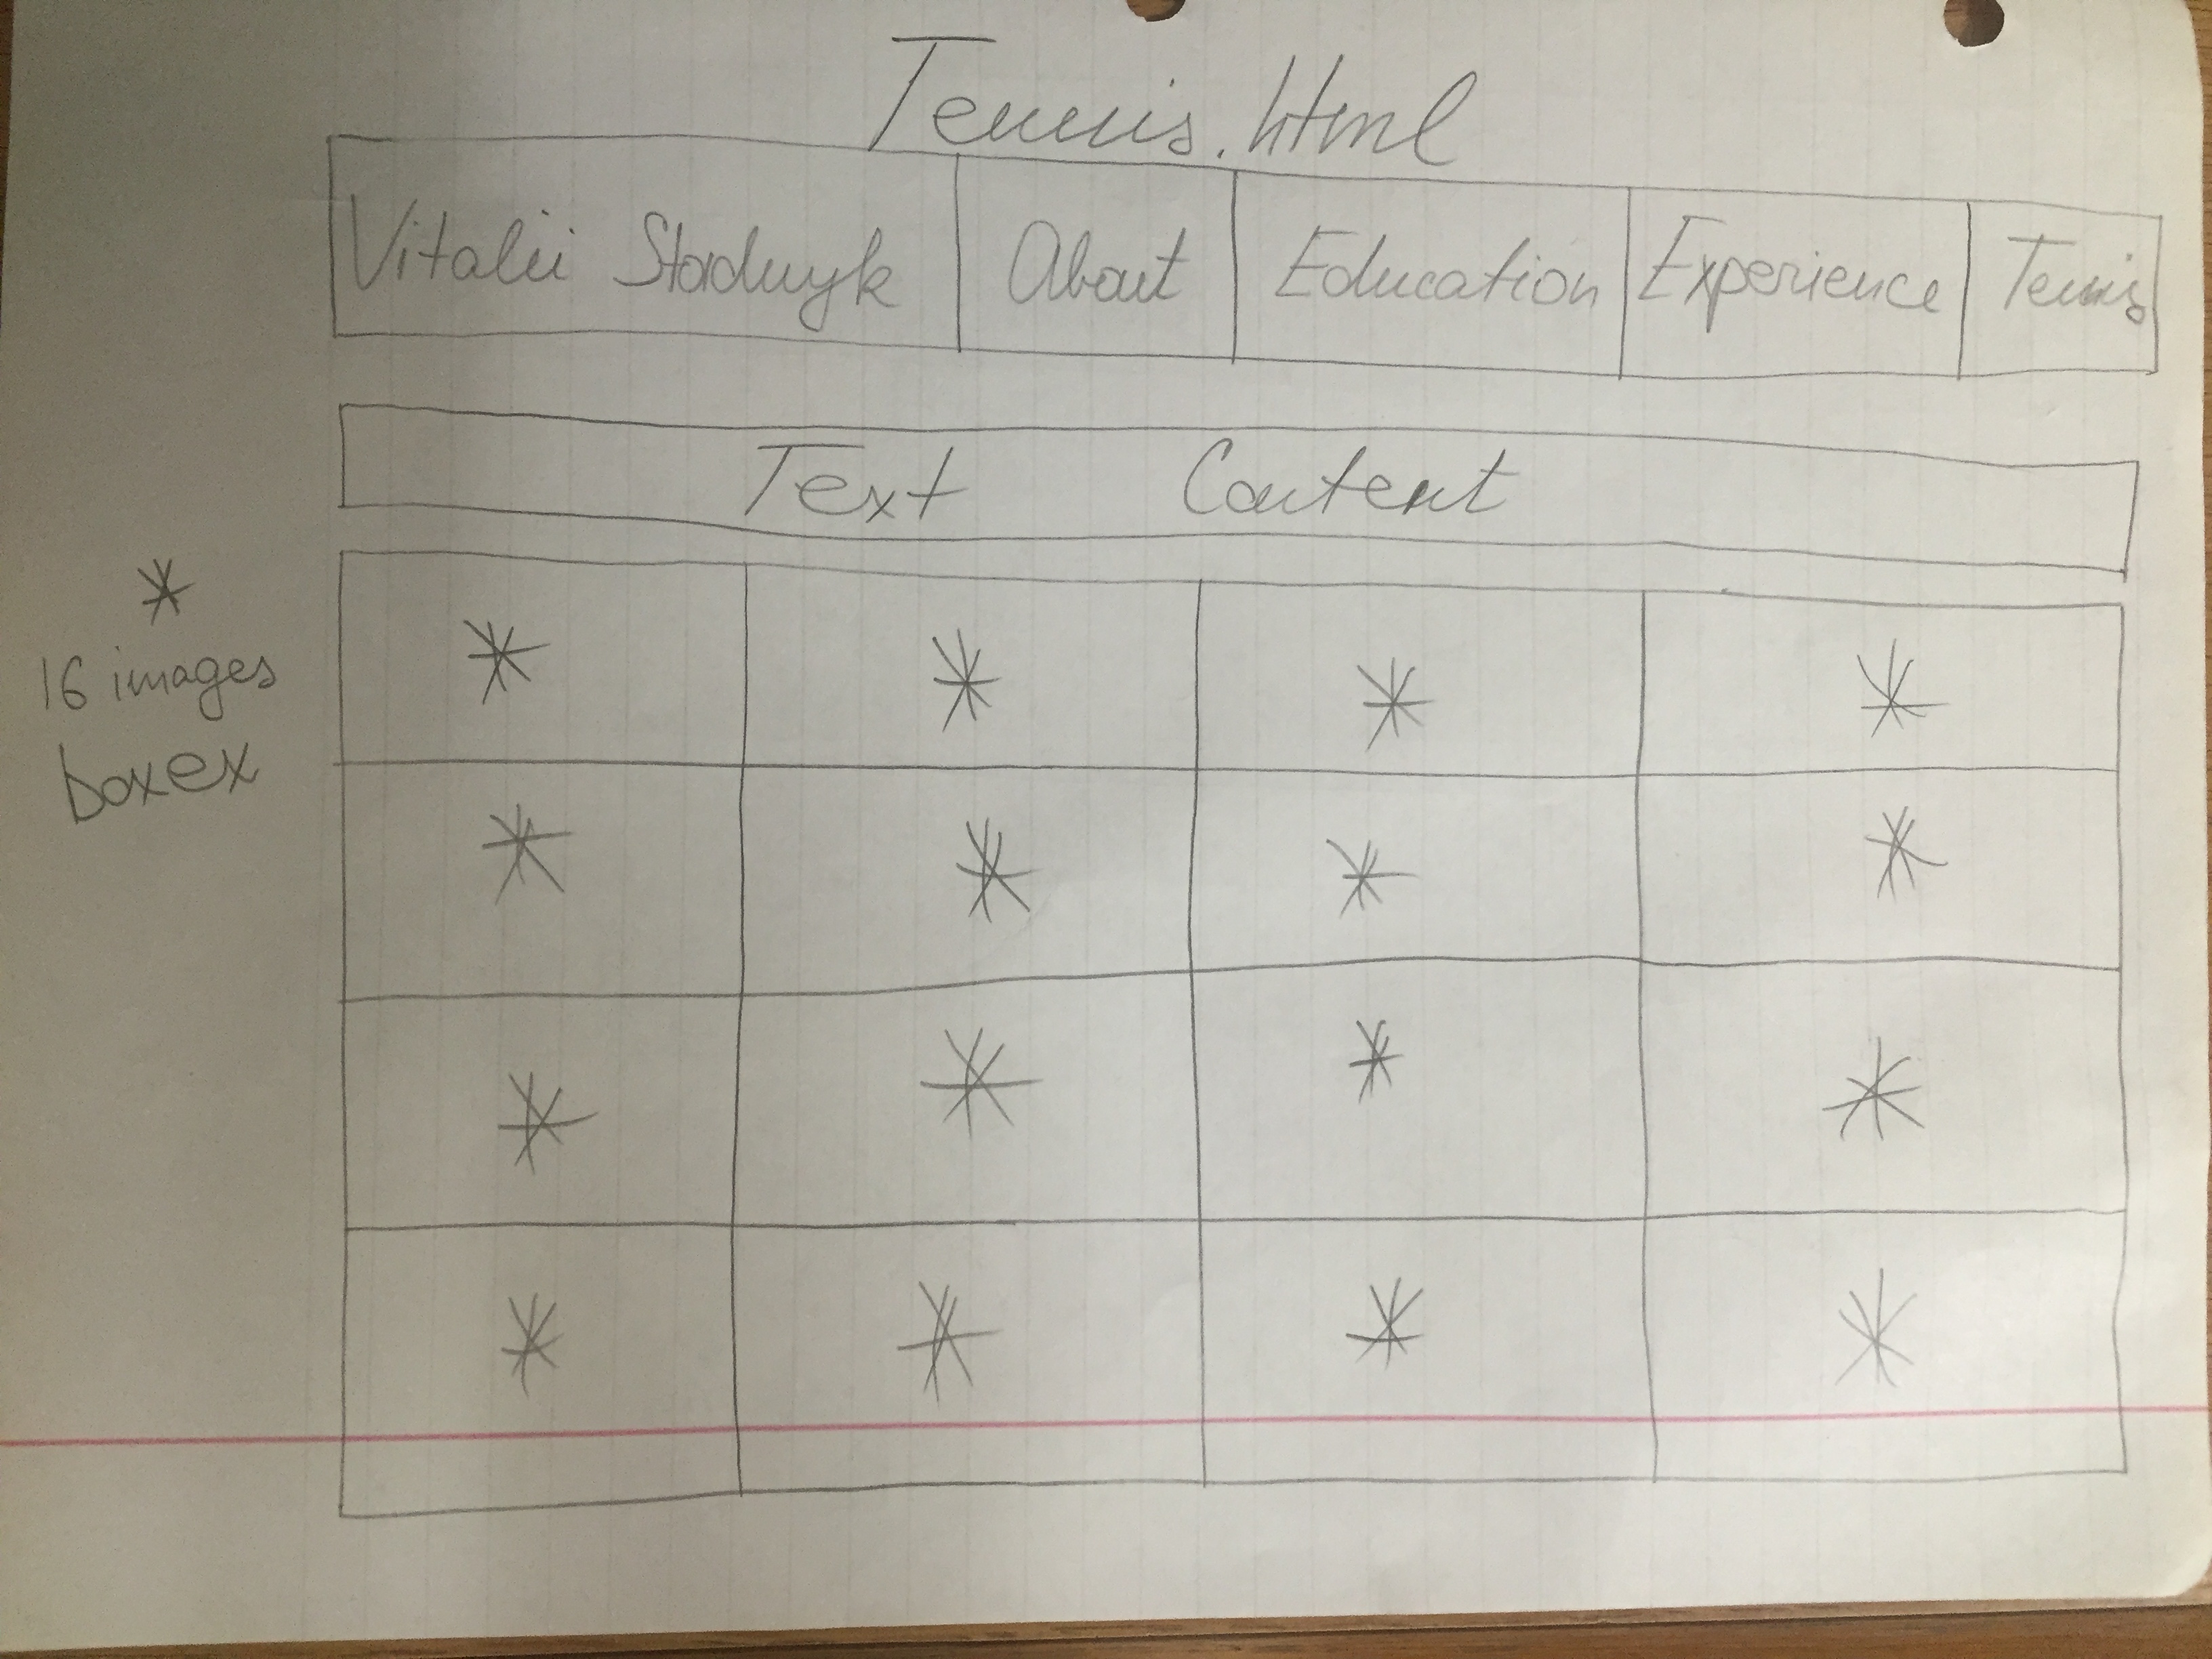 Tennis.html
Vitalii Stadnyk About Education Experience Tennis
Text Content
*
16 images
boxex
* * * *
* * * *
* * * *
* * * *